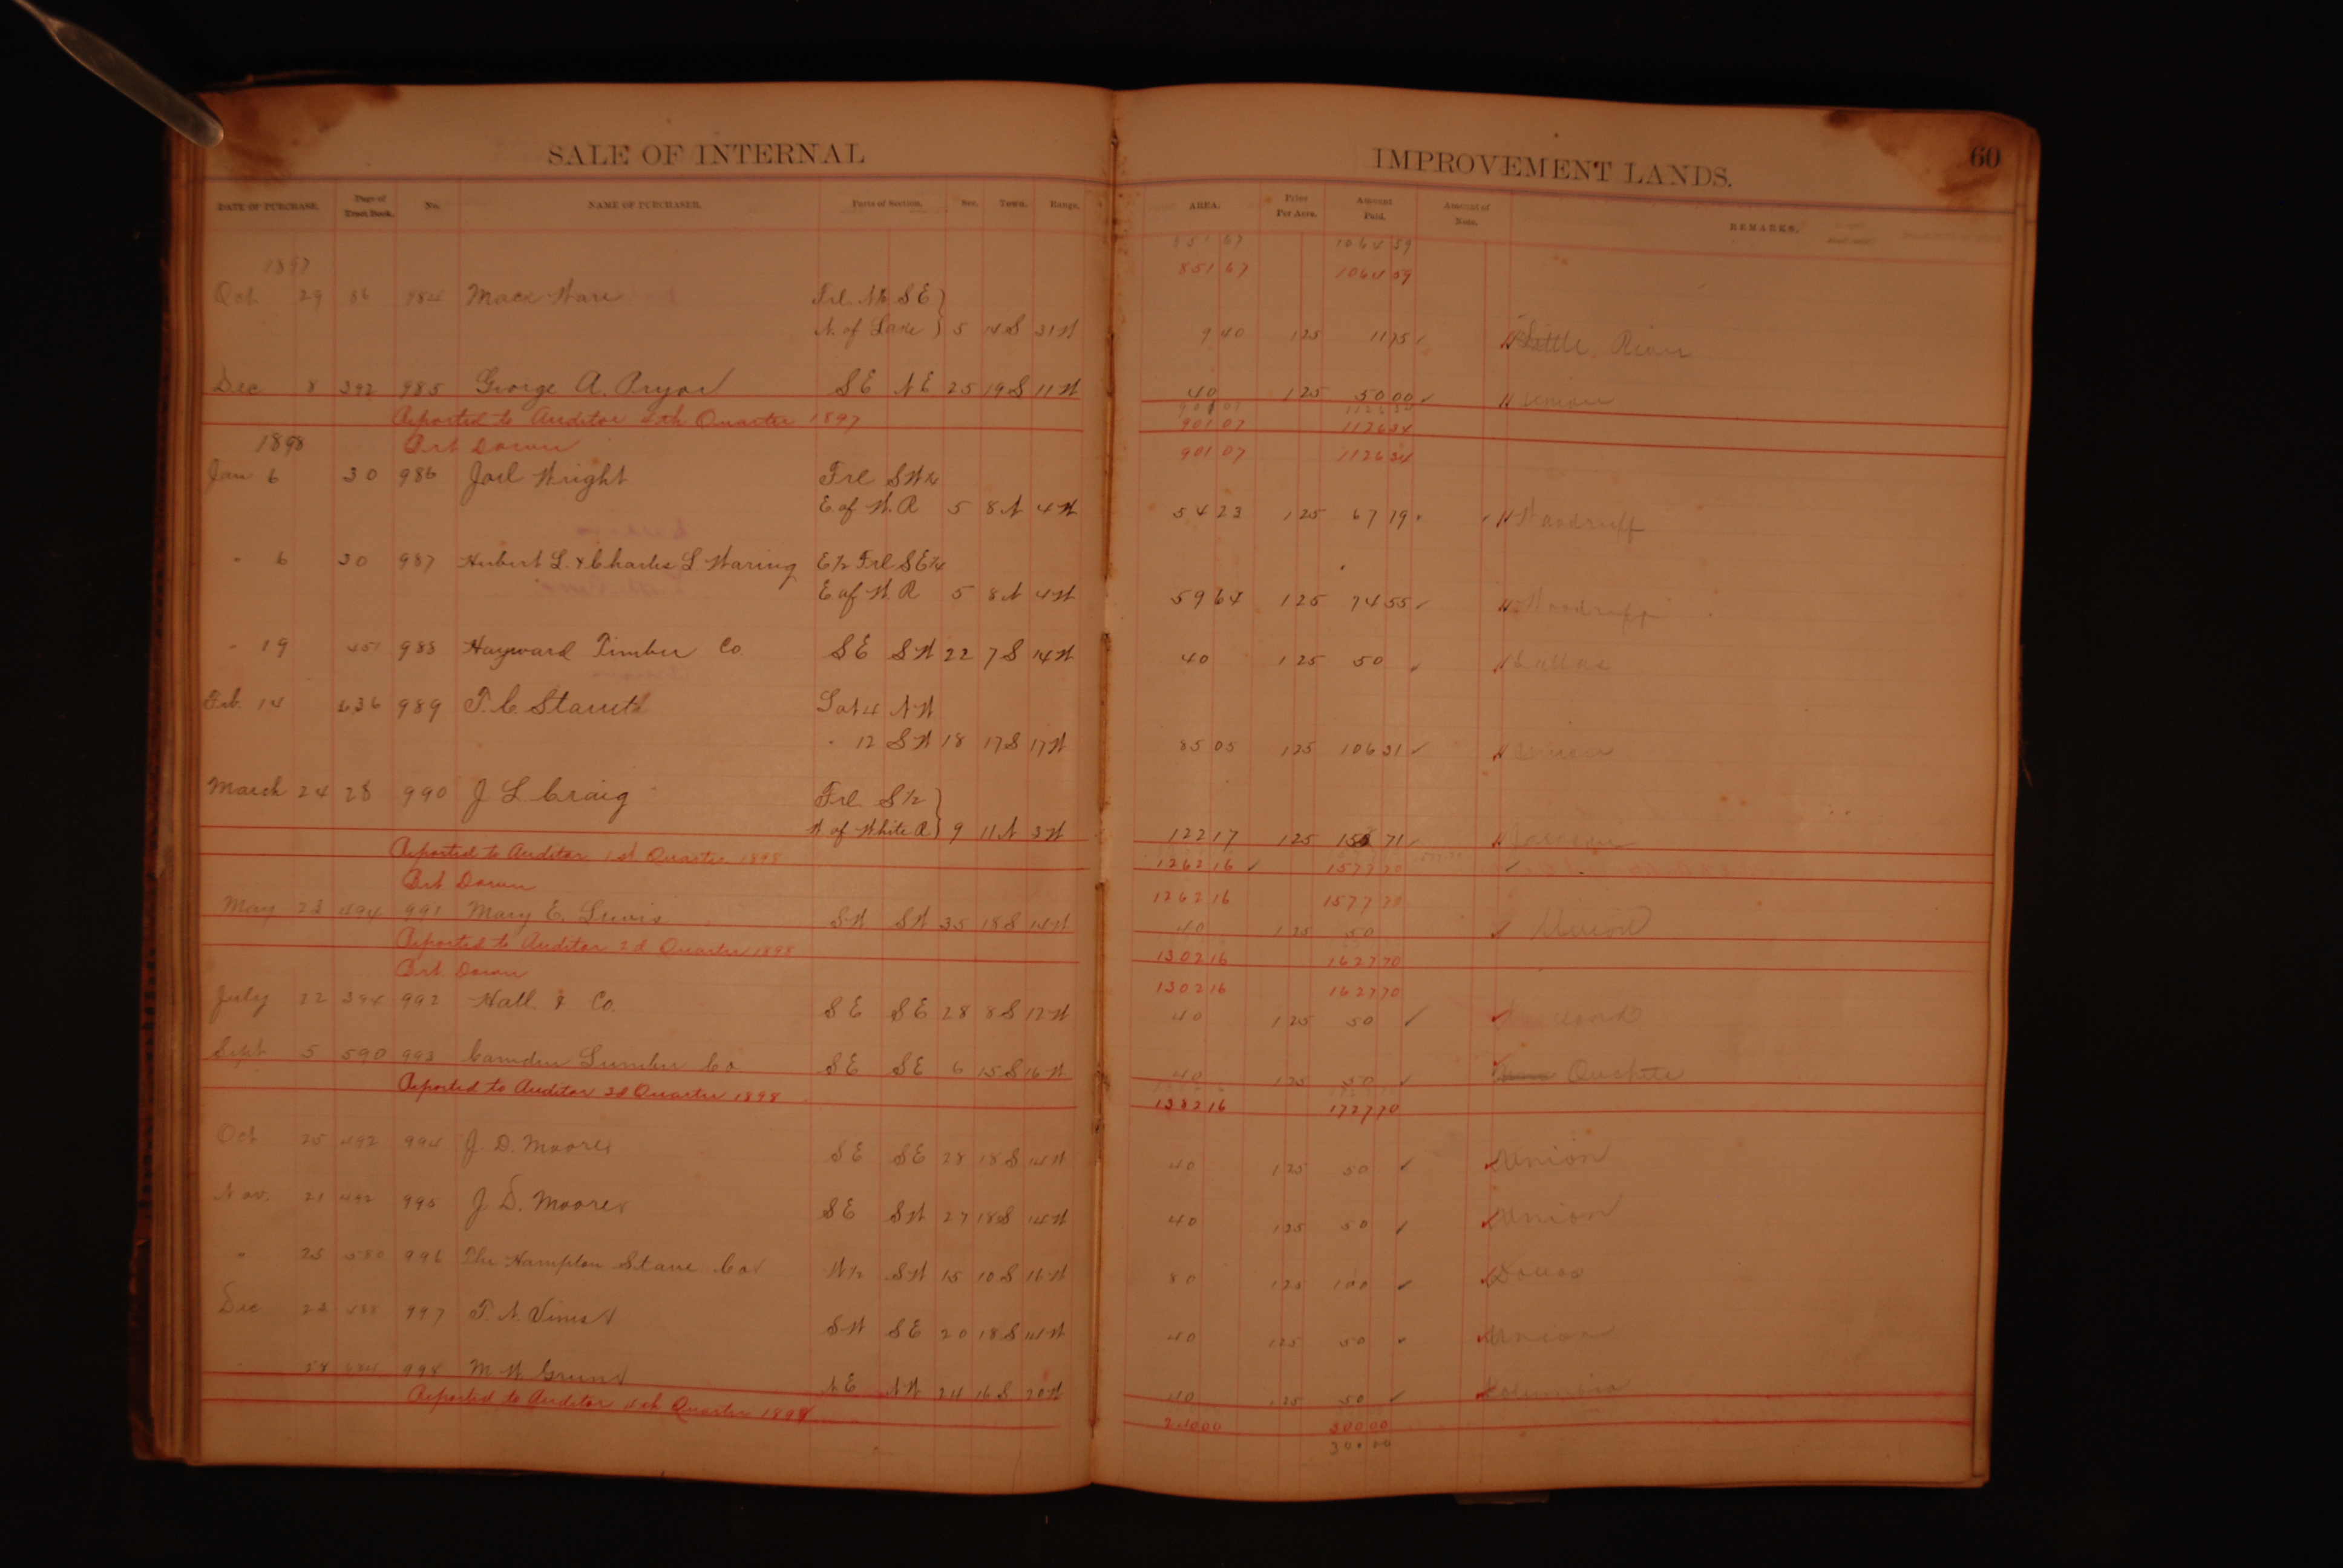 SALE OF INTERNAL IMPROVEMENT LANDS. 60
DATE OF PURCHASE. Page of Tract Book. No. NAME OF PURCHASER. Parts of Section. Sec. Town. Range. AREA. Price Per Acre. Amount Paid. Amount of Note. REMARKS.
851 67 1064 59
1897 851 67 1064 59
Oct 29 86 984 Mack Ware Frl NE SE
N. of Lake 5 14S 31W 9 40 1 25 11 75 Little River
Dec 8 392 985 George A. Pryor SE NE 25 19S 11W 40 1 25 50 00
901 07 1126 34
Reported to Auditor 4th Quarter 1897 901 07 1126 34
1898 Brt Down 901 07 1126 34
Jan 6 30 986 Joel Wright Frl SW¼
E. of W. R 5 8N 4W 54 23 1 25 67 79 Woodruff
" 6 30 987 Hubert L. & Charles L. Waring E½ Frl SE¼
E of W. R 5 8N 4W 59 64 1 25 74 55 Woodruff
" 19 451 988 Hayward Timber Co. SE SW 22 7S 14W 40 1 25 50 Dallas
Feb. 14 636 989 T. C. Lot 4 NW
" 12 SW 18 17S 17W 85 05 1 25 106 31 Union
March 24 28 990 J. L. Craig Frl S½
W of White R 9 11N 3W 122 17 1 25 71
Reported to Auditor 1st Quarter 1898 1262 16 1577 70
Brt Down 1262 16 1577 70
May 23 494 991 Mary E. Lewis SW SW 35 18S 14W 40 1 25 50 Union
Reported to Auditor 2d Quarter 1898 1302 16 1627 70
Brt Down 1302 16 1627 70
July 22 394 992 Hall & Co. SE SE 28 8S 12W 40 1 25 50
Sept 5 590 993 Camden Lumber Co SE SE 6 15S 16W 40 1 25 50 Ouachita
Reported to Auditor 3d Quarter 1898 1382 16 1727 70
Oct 25 492 994 J. D. Moore SE SE 28 18S 14W 40 1 25 50 Union
Nov. 21 492 995 J. D. Moore SE SW 27 18S 14W 40 1 25 50 Union
" 25 580 996 The Hampton Stave Co W½ SW 15 10S 16W 80 1 25 100 Dallas
Dec 997 T. N. Vines SW SE 20 18S 14W 40 1 25 50 Union
" 28 634 998 M. W. NE NW 24 16S 20W 40 1 25 50 Columbia
Reported to Auditor 4th Quarter 1898 240 00 300 00
300 00